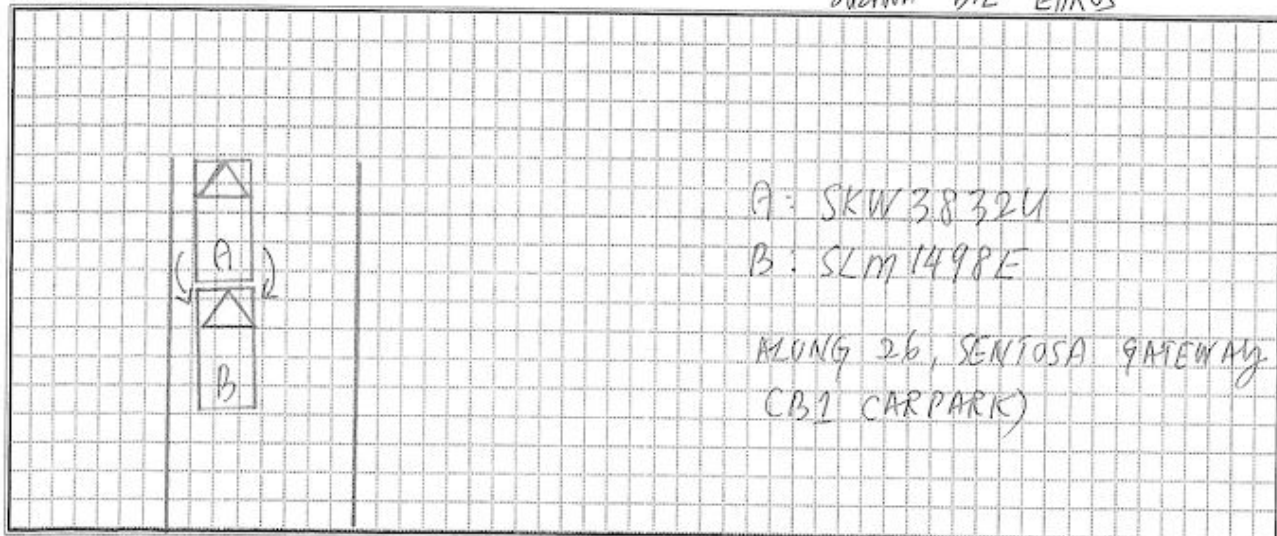 A
B
A: SKW3832U
B: SLM1498E
ALONG 26, SENTOSA GATEWAY
(B1 CARPARK)